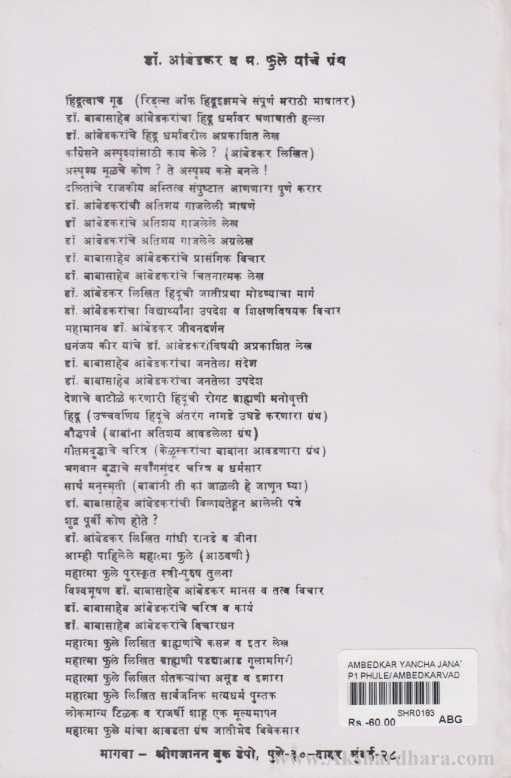 डॉ. आंबेडकर व म. फुले यांचे ग्रंथ
हिंदूत्वाच गूढ (रिडल्स ऑफ हिंदूइझमचे संपूर्ण मराठी भाषातर)
डॉ. बाबासाहेब आंबेडकरांचा हिंदू धर्मावर घणाघाती हल्ला
डॉ. आंबेडकरांचे हिंदू धर्मावरील अप्रकाशित लेख
काँग्रेसने अस्पृश्यांसाठी काय केले ? (आंबेडकर लिखित)
अस्पृश्य मूळचे कोण ? ते अस्पृश्य कसे बनले !
दलितांचे राजकीय अस्तित्व संपुष्टात आणणारा पुणे करार
डॉ. आंबेडकरांची अतिशय गाजलेली भाषणे
डॉ आंबेडकरांचे अतिशय गाजलेले लेख
डॉ आंबेडकरांचे अतिशय गाजलेले अग्रलेख
डॉ. बाबासाहेब आंबेडकरांचे प्रासंगिक विचार
डॉ. बाबासाहेब आंबेडकरांचे चितनात्मक लेख
डॉ. आंबेडकर लिखित हिंदूंची जातीप्रथा मोडण्याचा मार्ग
डॉ. आंबेडकरांचा विद्यार्थ्यांना उपदेश व शिक्षणविषयक विचार
महामानव डॉ. आंबेडकर जीवनदर्शन
धनंजय कीर यांचे डॉ. आंबेडकरांविषयी अप्रकाशित लेख
डॉ. बाबासाहेब आंबेडकरांचा जनतेला संदेश
डॉ. बाबासाहेब आंबेडकरांचा जनतेला उपदेश
देशाचे वाटोळे करणारी हिंदूंची रोगट ब्राह्मणी मनोवृत्ती
हिंदू (उच्चवर्णिय हिंदूंचे अंतरंग नागडे उघडे करणारा ग्रंथ)
बौद्धपर्व (बाबांना अतिशय आवडलेला ग्रंथ)
गौतमबुद्धाचे चरित्र (केळूस्करांचा बाबांना आवडणारा ग्रंथ)
भगवान बुद्धाचे सर्वांगसुंदर चरित्र व धर्मसार
सार्थ मनुस्मृती (बाबांनी ती का जाळली हे जाणून घ्या)
डॉ. बाबासाहेब आंबेडकरांची विलायतेहून आलेली पत्रे
शूद्र पूर्वी कोण होते ?
डॉ. आंबेडकर लिखित गांधी रानडे व जीना
आम्ही पाहिलेले महात्मा फुले (आठवणी)
महात्मा फुले पुरस्कृत स्त्री-पुरुष तुलना
विश्वभूषण डॉ. बाबासाहेब आंबेडकर मानस व तत्व विचार
डॉ. बाबासाहेब आंबेडकरांचे चरित्र व कार्य
डॉ. बाबासाहेब आंबेडकरांचे विचारधन
महात्मा फुले लिखित ब्राह्मणांचे कसब व इतर लेख
महात्मा फुले लिखित ब्राह्मणी पडद्याआड गुलामगिरी
महात्मा फुले लिखित शेतकऱ्यांचा असूड व इशारा
महात्मा फुले लिखित सार्वजनिक सत्यधर्म पुस्तक
लोकमान्य टिळक व राजर्षी शाहू एक मूल्यमापन
महात्मा फुले यांचा आवडता ग्रंथ जातीभेद विवेकसार
मागवा – श्रीगजानन बुक डेपो, पुणे-३०-दादर मुंबई-२८
AMBEDKAR YANCHA JANA'
P1 PHULE/AMBEDKARVAD
SHR0163
Rs.-60.00 ABG
www.Akshardhara.com